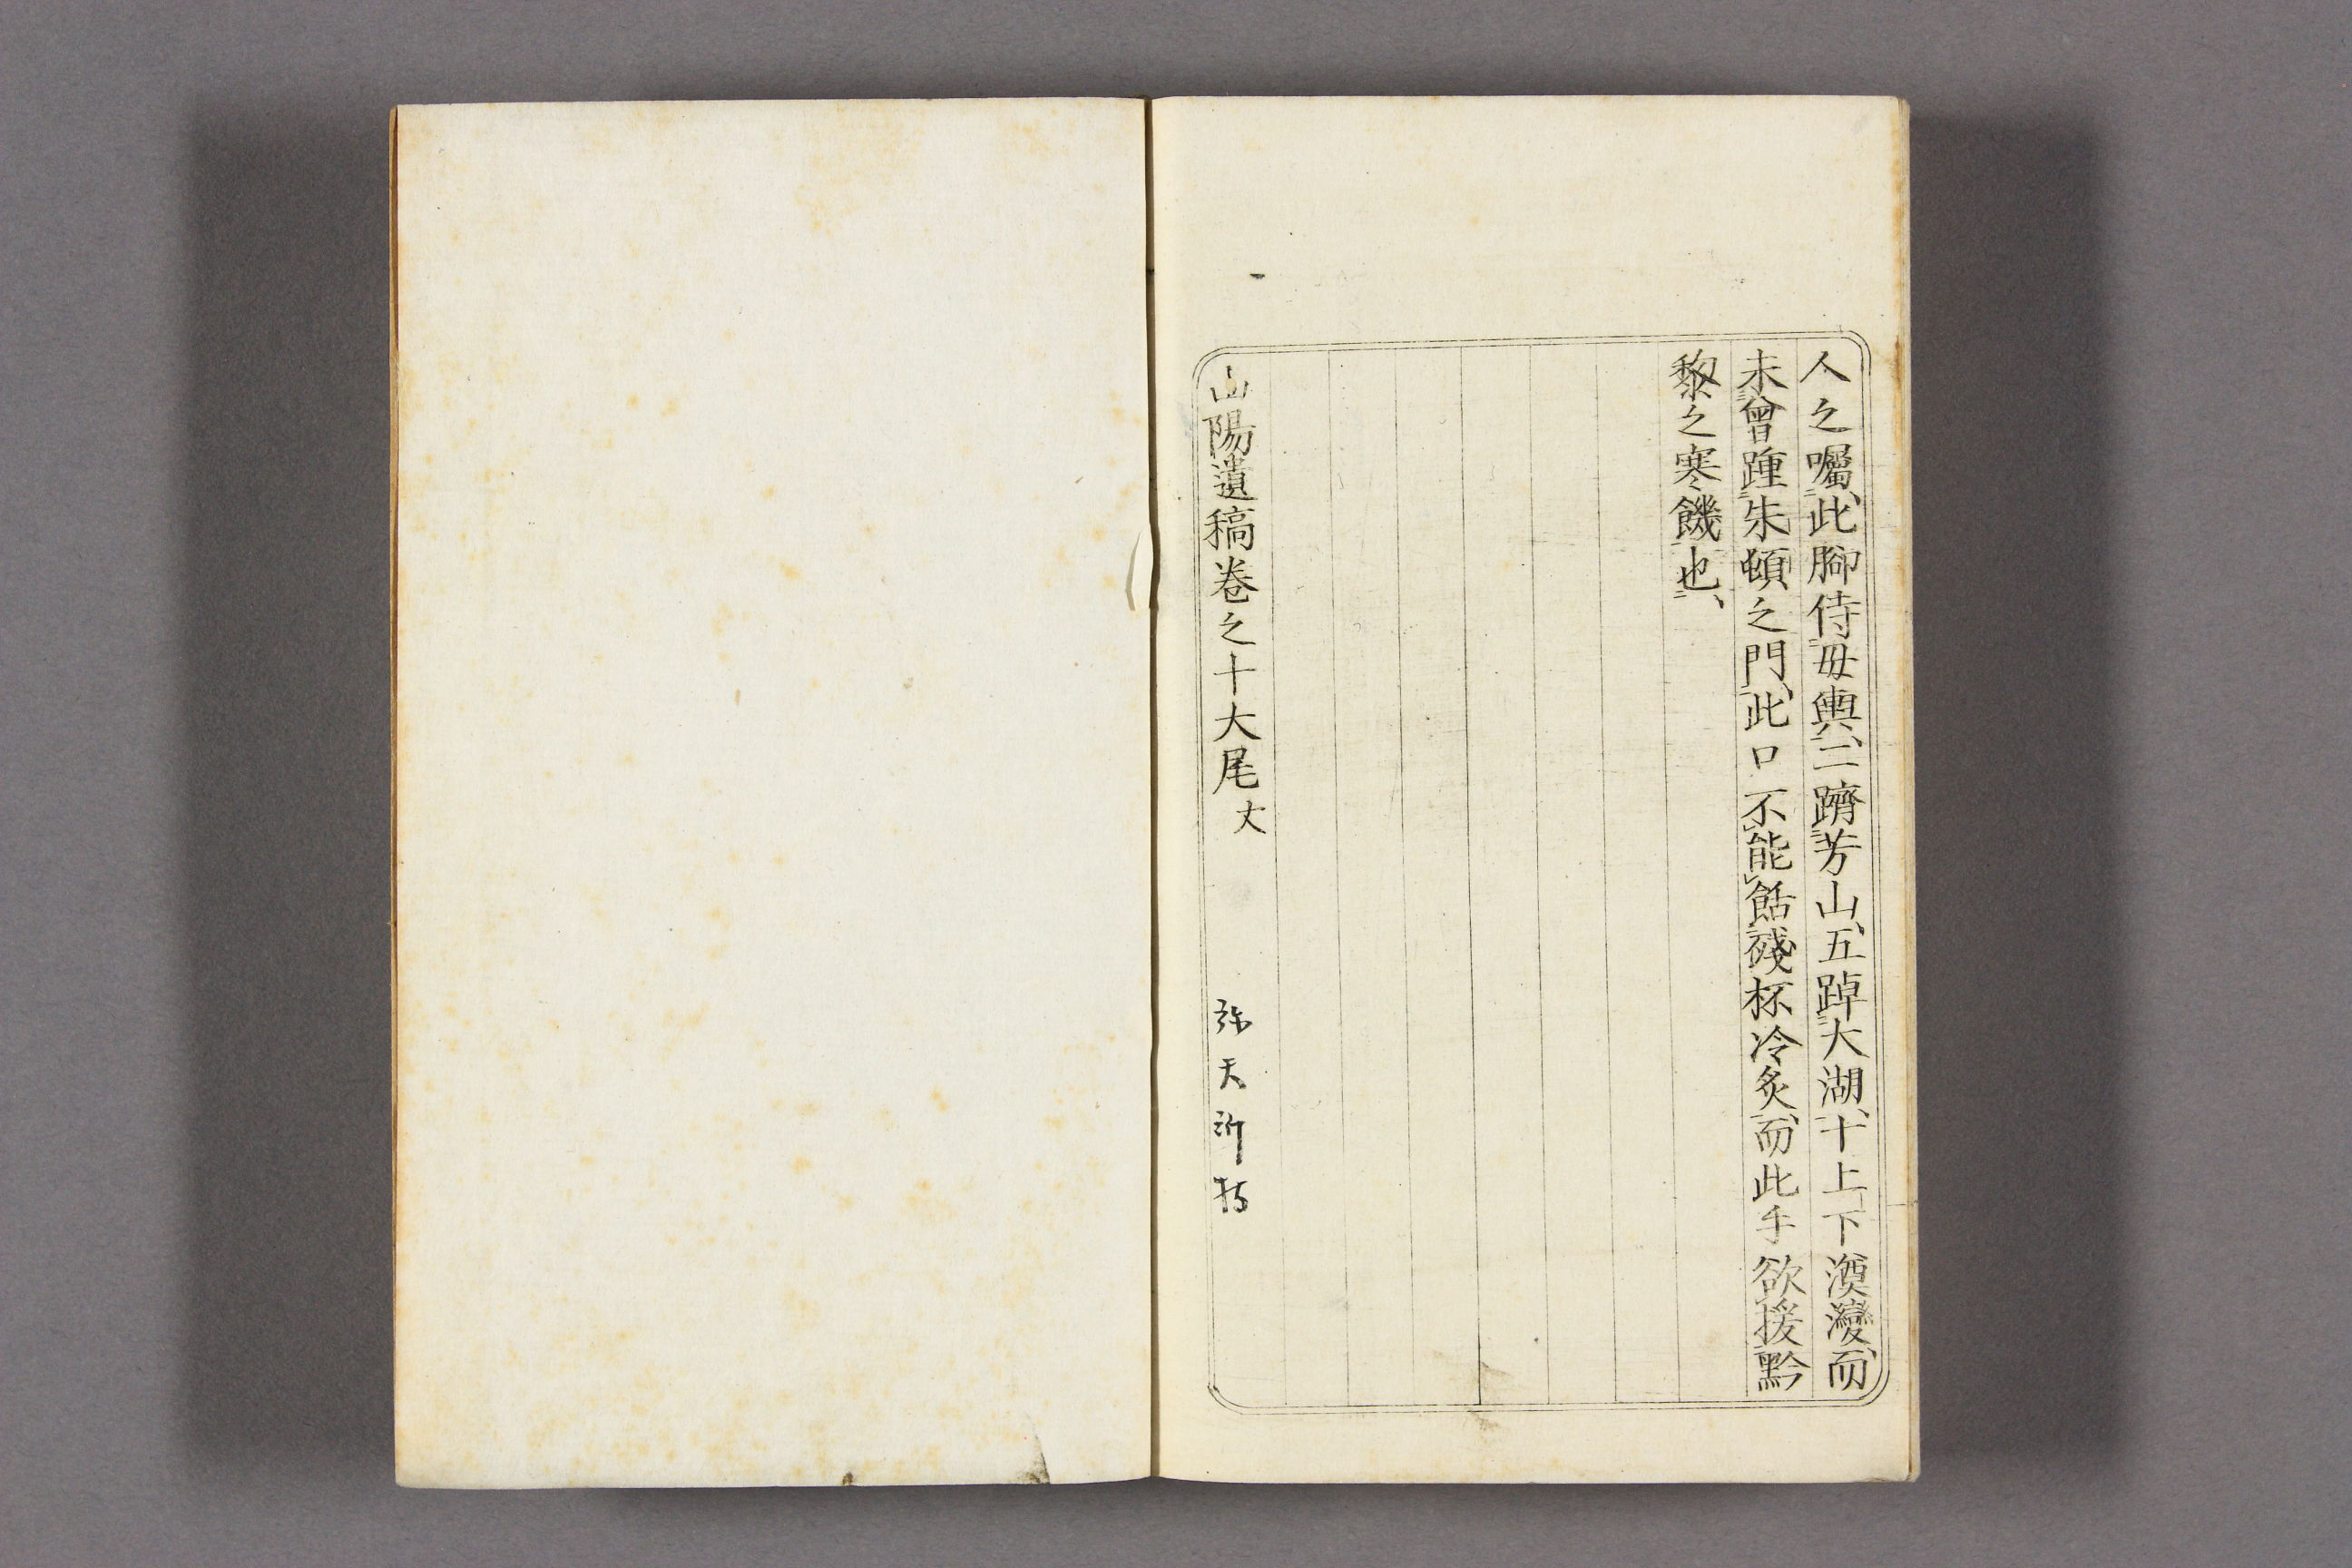 人之囑、此腳侍毋輿、二躋芳山、五踔大湖、十上下澳灣、而
未曾踵朱頓之門、此口不能餂殘杯冷炙、而此手欲援黔
黎之寒饑也、
山陽遺稿卷之十大尾 丈
弥天所